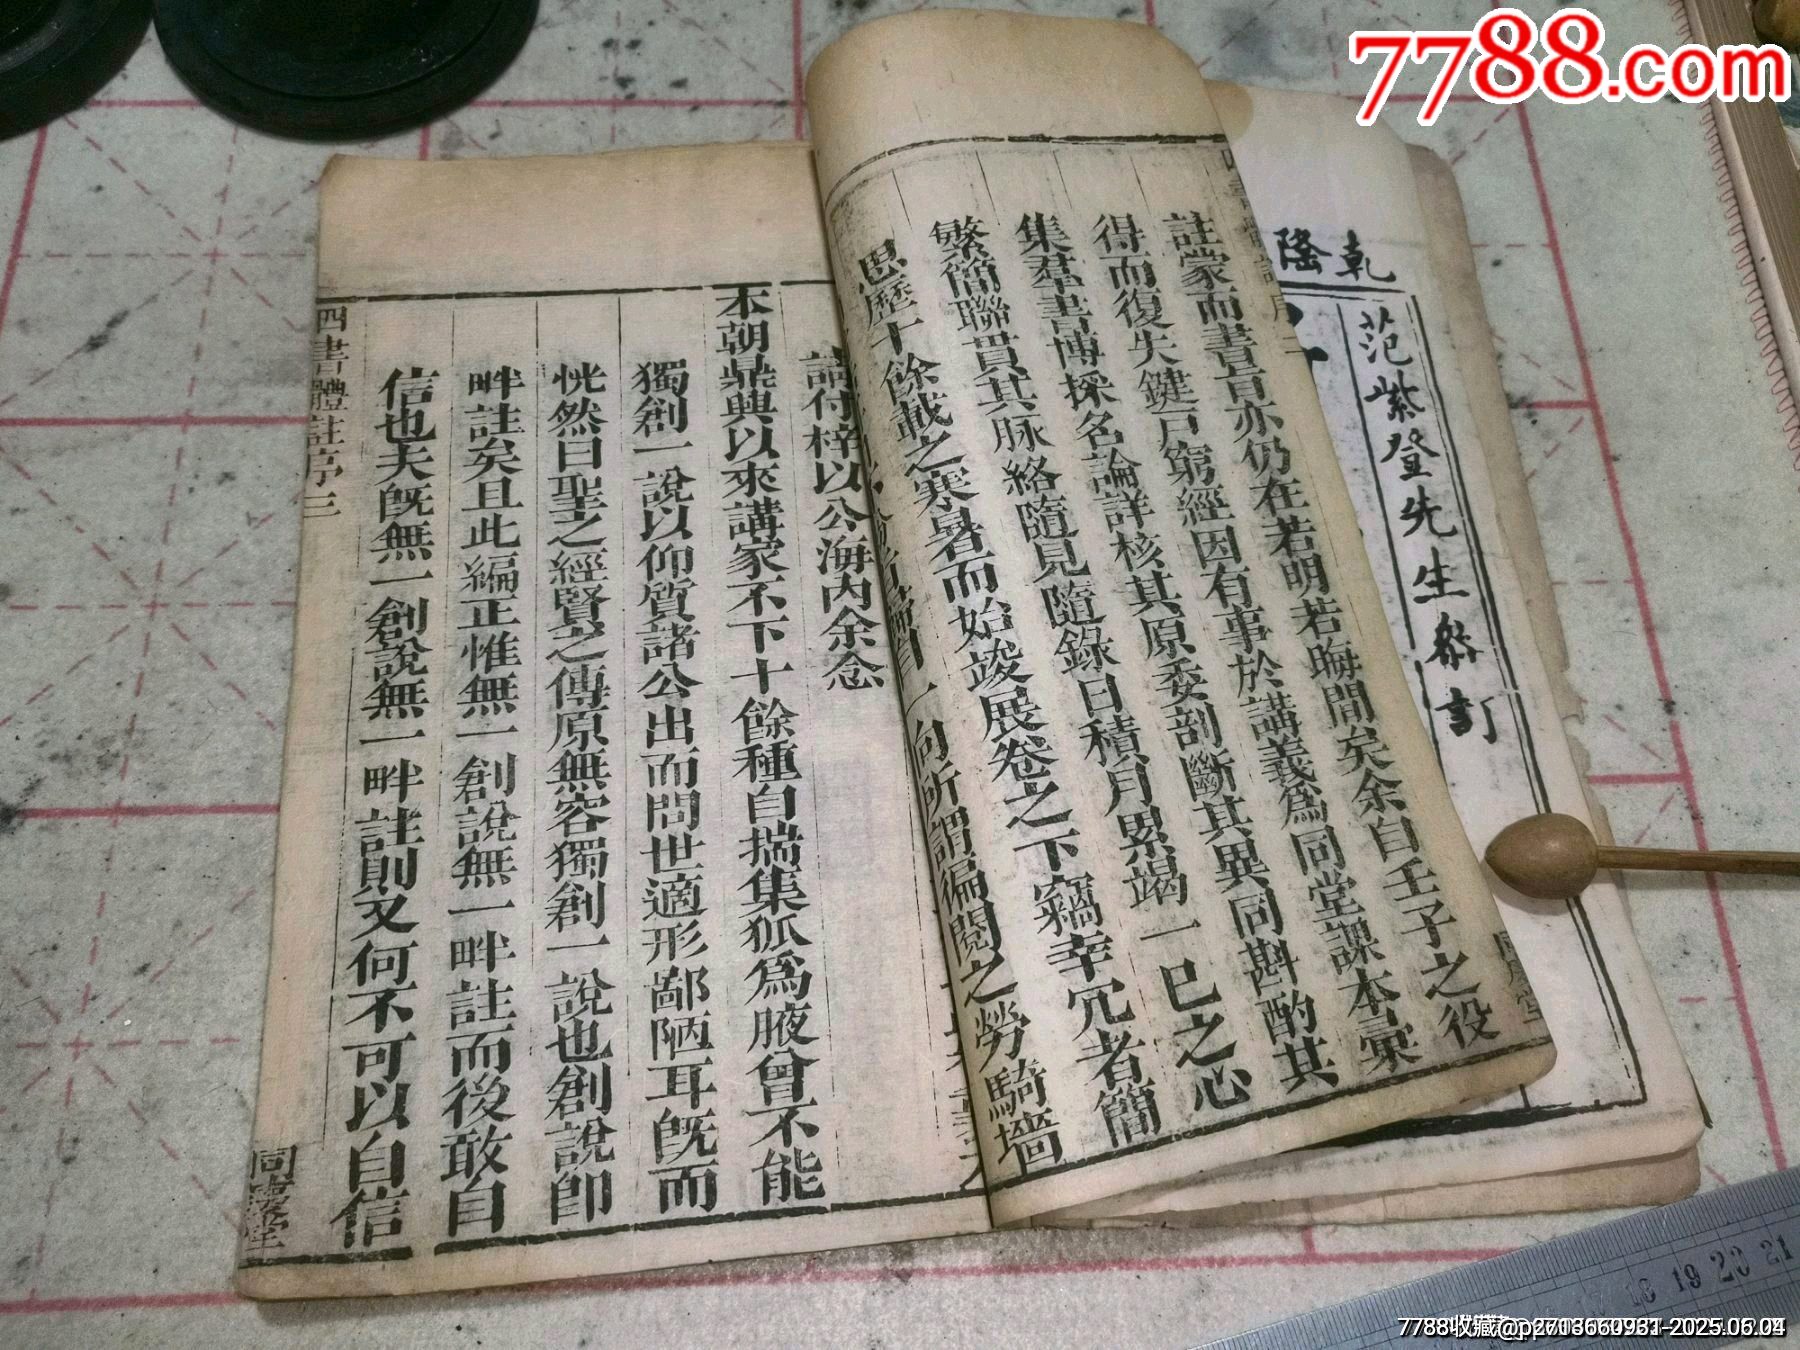 7788.com
乾隆
范紫登先生叅訂
註蒙而晝盲亦仍在若明若晦間矣余自壬子之役
得而復失鍵戸窮經因有事於講義為同堂課本彙
集羣書博採名論詳核其原委剖斷其異同斟酌其
繁簡聯貫其脉絡隨見隨錄日積月累竭一已之心
思歷十餘載之寒暑而始竣展卷之下竊幸冗者簡
一向所謂徧閱之勞騎墻
請付梓以公海内余念
本朝鼎興以來講家不下十餘種自揣集狐為腋曾不能
獨創一說以仰質諸公出而問世適形鄙陋耳旣而
恍然曰聖之經賢之傳原無容獨創一說也創說即
畔註矣且此編正惟無一創說無一畔註而後敢自
信也夫旣無一創說無一畔註則又何不可以自信
四書體註序三
同慶堂
18 19 20 21